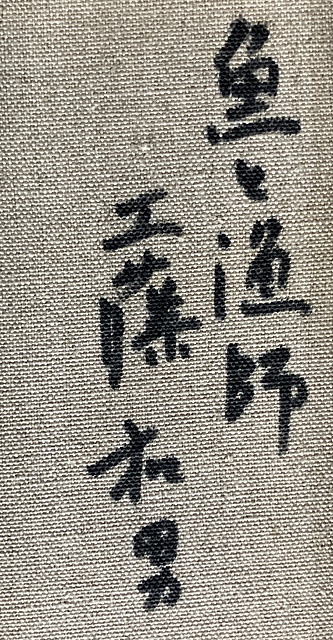 魚と漁師
工藤和男